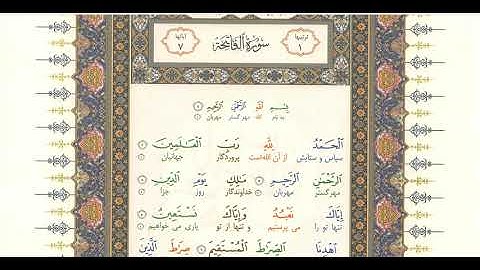 ترتیبها ١ سُورَةُ ٱلْفَاتِحَة آیاتها ٧
بِسْمِ ٱللَّهِ ٱلرَّحْمَٰنِ ٱلرَّحِيمِ ١
به نام الله مهرگستر مهربان
ٱلْحَمْدُ لِلَّهِ رَبِّ ٱلْعَٰلَمِينَ ٢
سپاس و ستایش از آن الله‌است پروردگار جهانیان
ٱلرَّحْمَٰنِ ٱلرَّحِيمِ ٣ مَٰلِكِ يَوْمِ ٱلدِّينِ ٤
مهرگستر مهربان خداوندگار روز جزا
إِيَّاكَ نَعْبُدُ وَإِيَّاكَ نَسْتَعِينُ ٥
تنها تو را می پرستیم و تنها از تو یاری می خواهیم
ٱهْدِنَا ٱلصِّرَٰطَ ٱلْمُسْتَقِيمَ ٦ صِرَٰطَ ٱلَّذِينَ